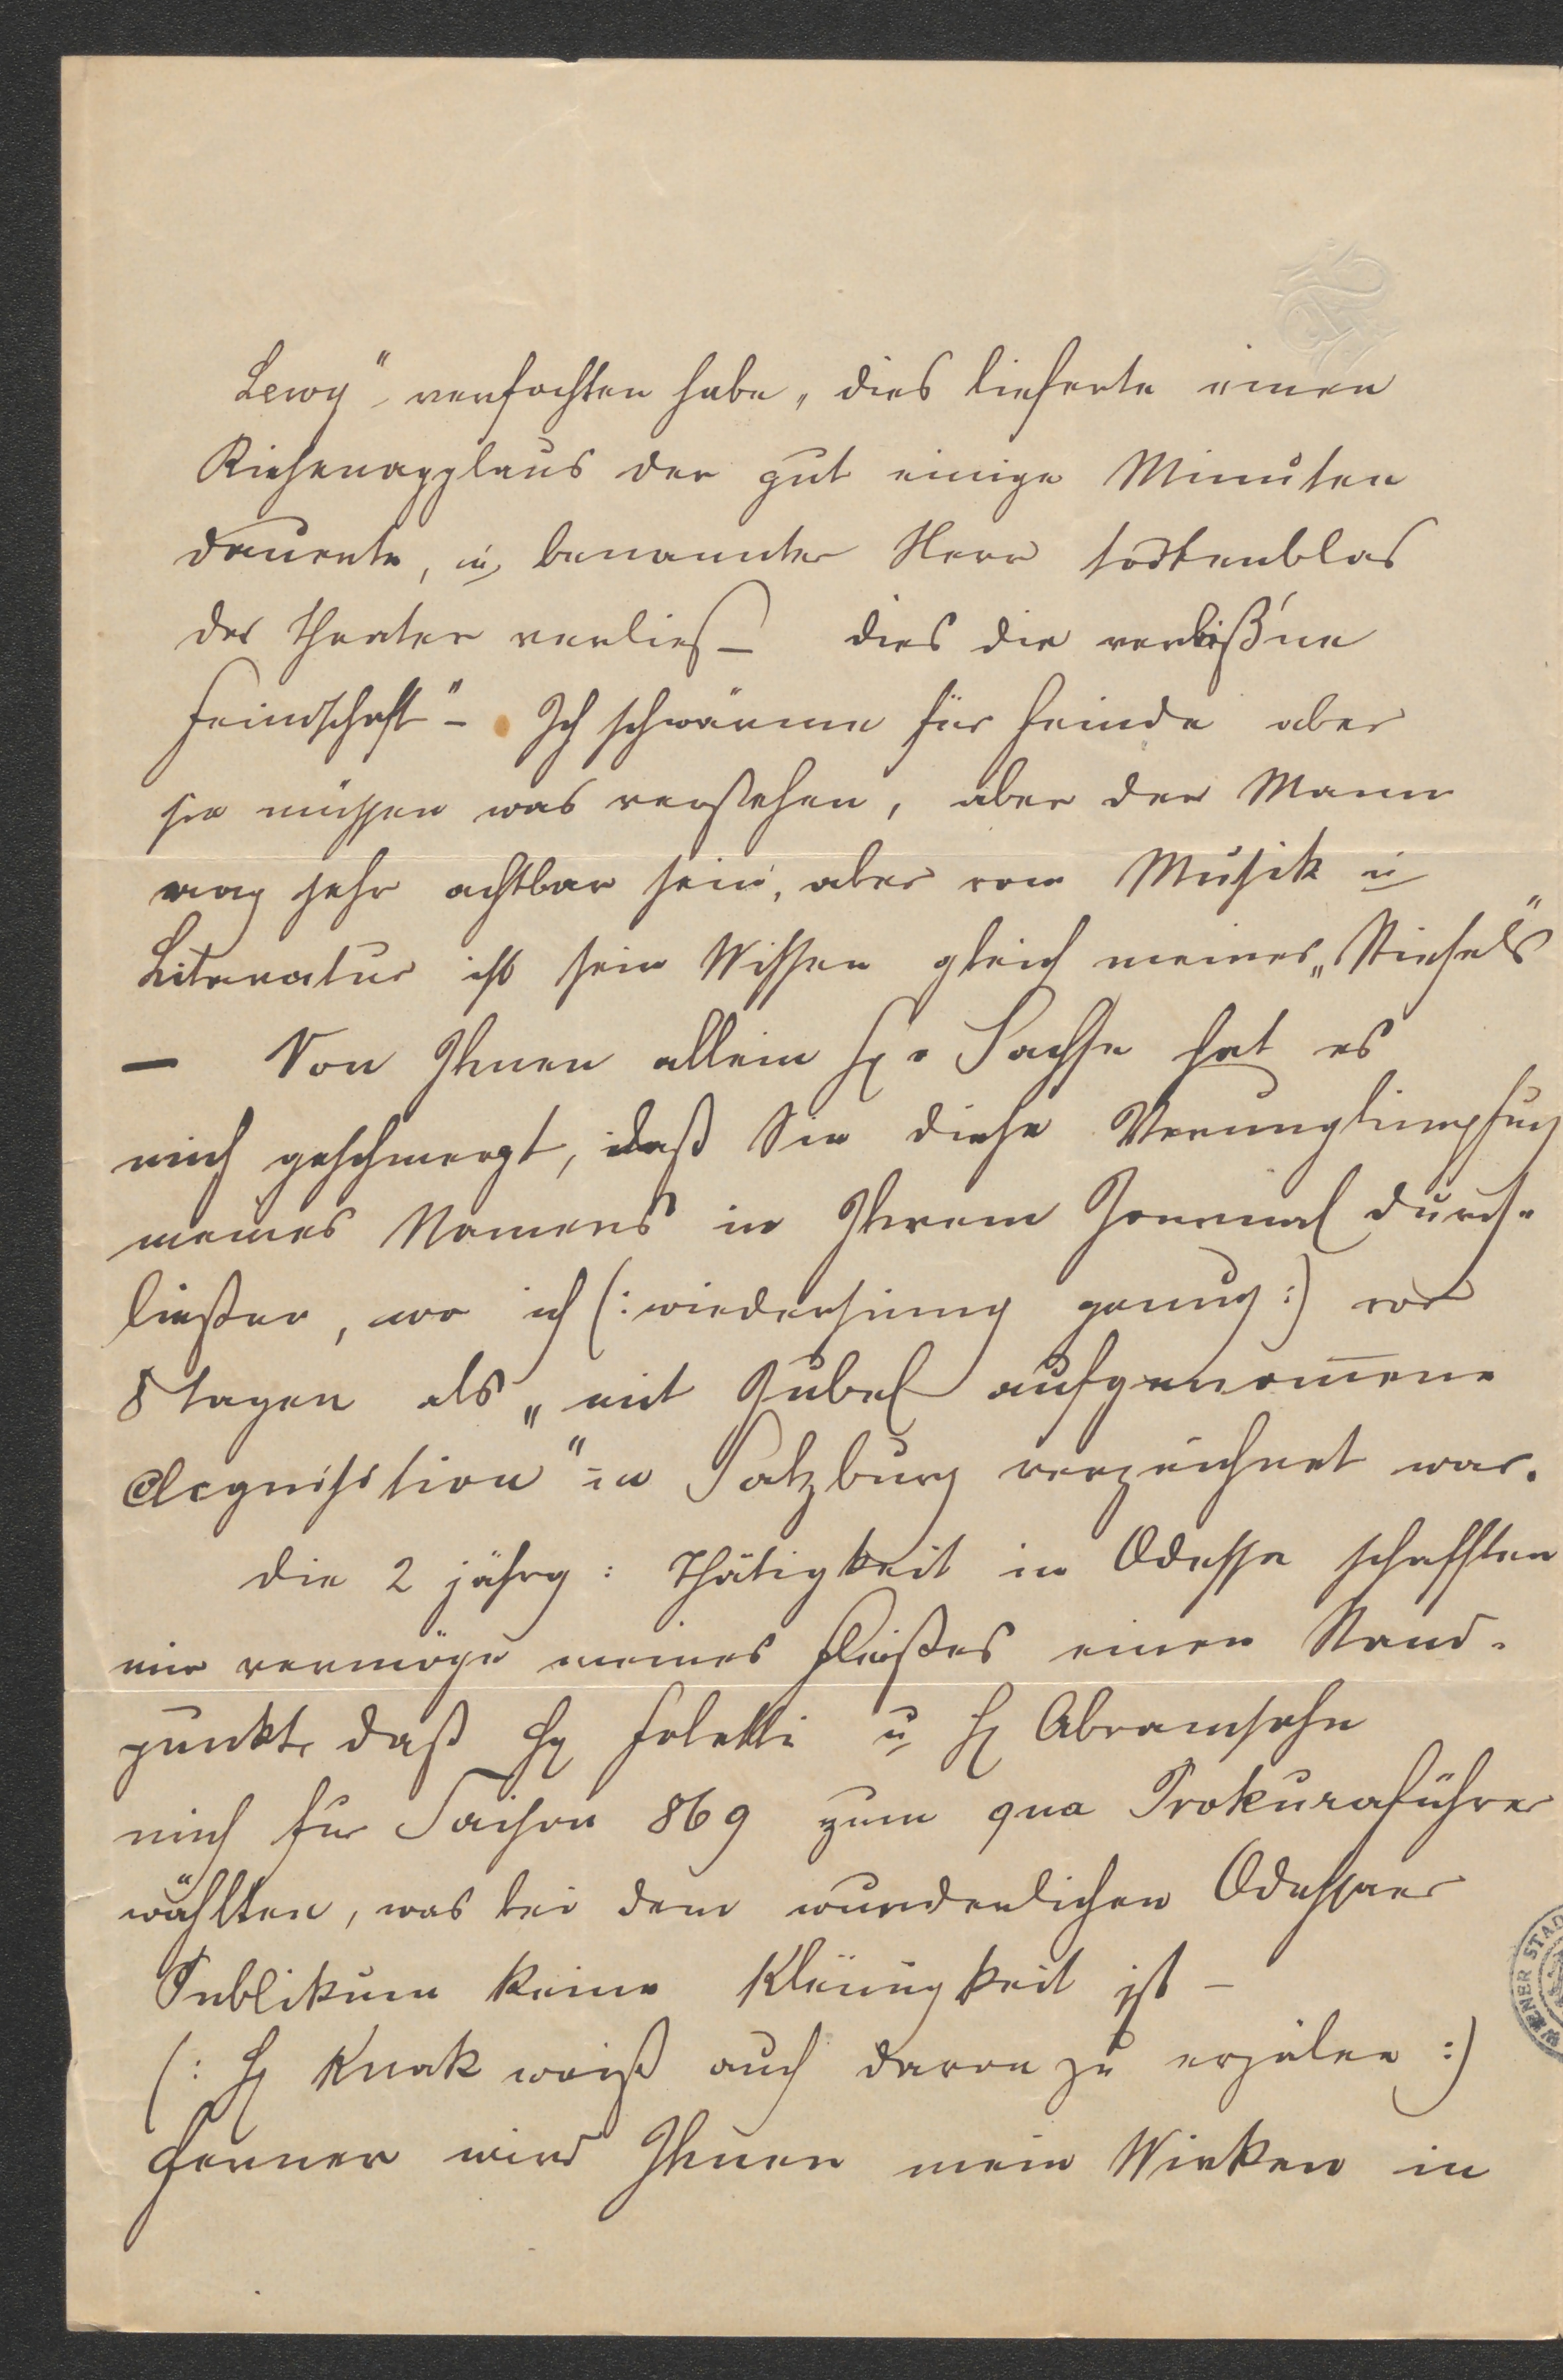 Lewy" verfochten habe, dies lieferte einen
Riesenapplaus der gut einige Minuten
dauerte, u benannter Herr todtenblas
das Theater verließ – dies die verbiß'ne
Feindschaft" – Ich schwärme für Feinde aber
sie müssen was verstehen, aber der Mann
mag sehr achtbar sein, aber von Musik u
Literatur ist sein Wissen gleich meines „Stiefels"
– Von Ihnen allein H. Sachse hat es
mich geschmerzt, daß Sie diese Verunglimpfung
meines Namens in Ihrem Journal durch-
ließen, wo ich (: wiedersinnig genug :) vor
8 Tagen als „mit Jubel aufgenom̄ene
Acquisition" in Salzburg verzeichnet war.
Die 2 jährg: Thätigkeit in Odessa schafften
mir vermöge meines Fleißes einen Stand-
punkt, daß H Foletti u H Abramsohn
mich für Saison 869 zum qua Prokuraführer
wählten, was bei dem wunderlichen Odessaer
Publikum keine Kleinigkeit ist –
(: H Knaak weiß auch davon zu erzälen :)
Ferner wird Ihnen mein Wirken in
WIENER STAD